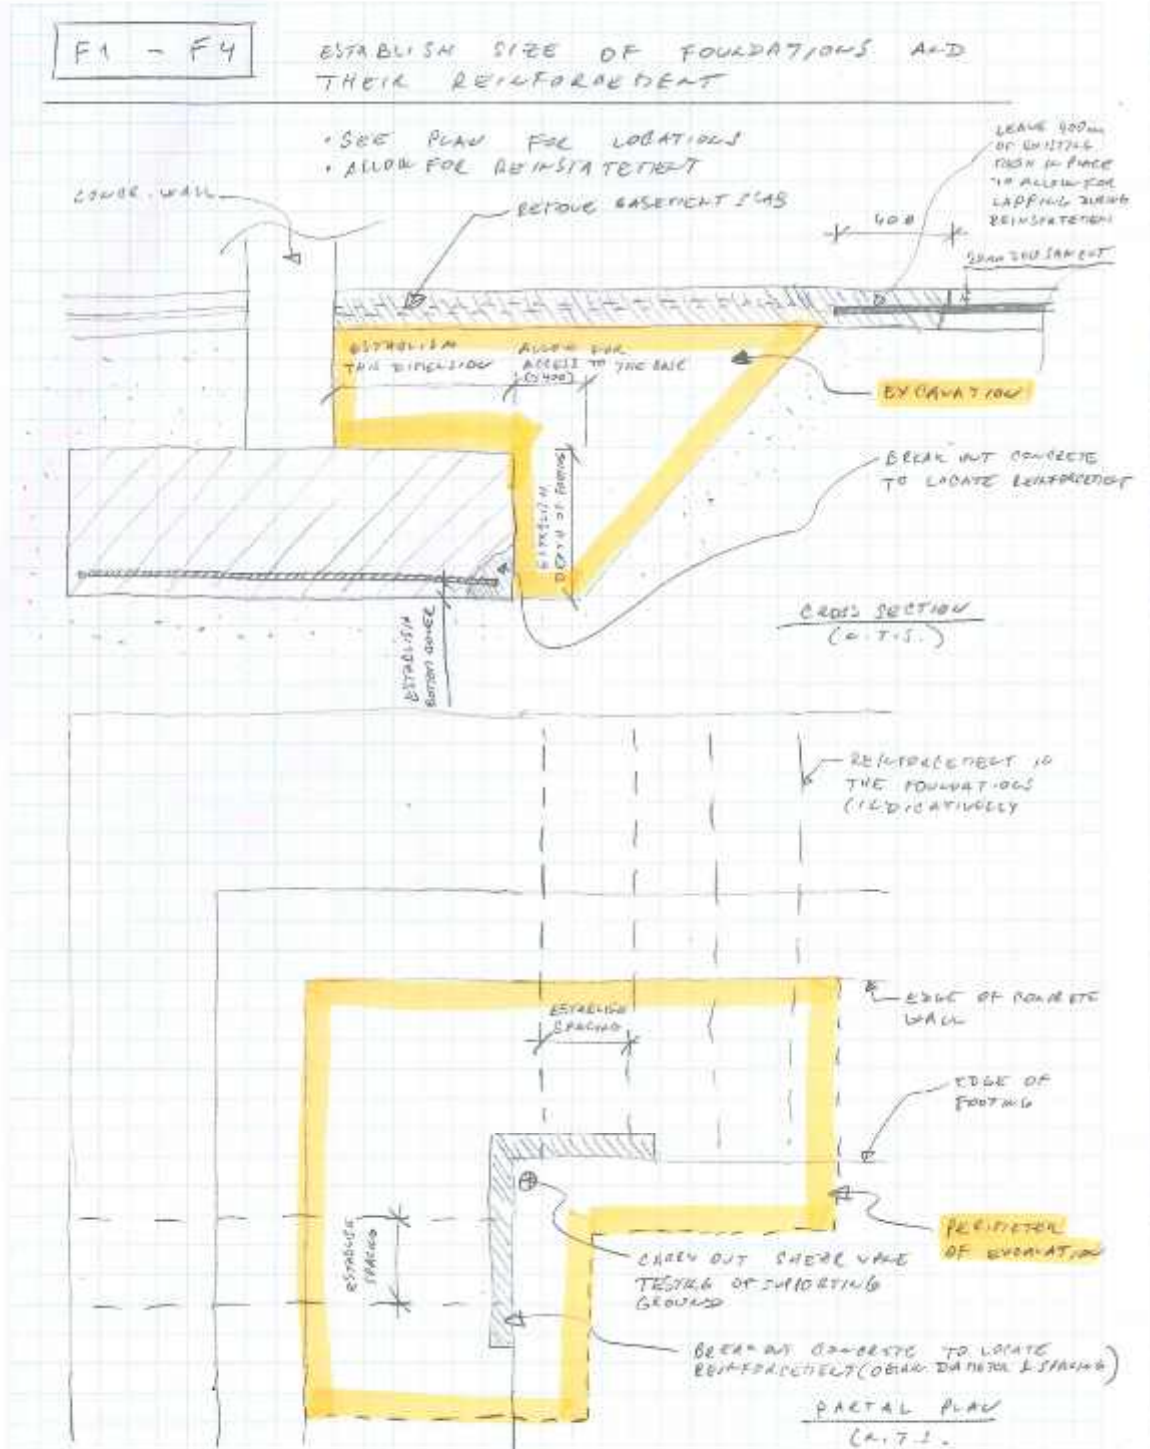 F1 - F4
ESTABLISH SIZE OF FOUNDATIONS AND
THEIR REINFORCEMENT
• SEE PLAN FOR LOCATIONS
• ALLOW FOR REINSTATEMENT
CONCR. WALL
REMOVE BASEMENT SLAB
LEAVE 400mm
OF EXISTING
MESH IN PLACE
TO ALLOW FOR
LAPPING DURING
REINSTATEMENT
400
SAWCUT
ESTABLISH
THIS DIMENSION
ALLOW FOR
ACCESS TO THE BASE
EXCAVATION
ESTABLISH
DEPTH OF FOOTING
BREAK OUT CONCRETE
TO LOCATE REINFORCEMENT
ESTABLISH
BOTTOM COVER
CROSS SECTION
(N.T.S.)
REINFORCEMENT IN
THE FOUNDATIONS
(INDICATIVELY
ESTABLISH
SPACING
EDGE OF CONCRETE
WALL
EDGE OF
FOOTING
ESTABLISH
SPACING
PERIMETER
OF EXCAVATION
CARRY OUT SHEAR VANE
TESTING OF SUPPORTING
GROUND
BREAK OUT CONCRETE TO LOCATE
REINFORCEMENT (OBTAIN DIAMETER & SPACING)
PARTAL PLAN
(N.T.S.